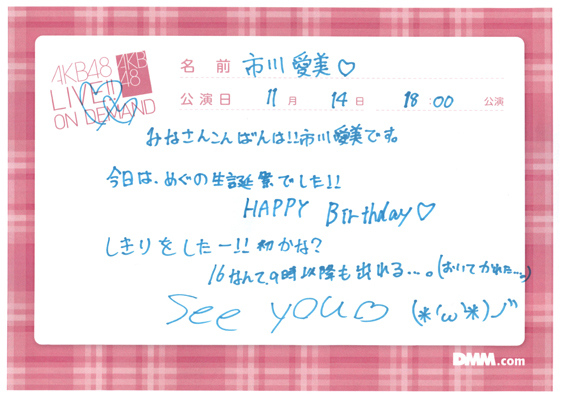 AKB48
LIVE!!
ON DEMAND
AKB
48
名前 市川愛美♡
公演日 11月 14日 18:00 公演
みなさんこんばんは!!市川愛美です。
今日は、めぐの生誕祭でした!!
HAPPY Birthday♡
しきりをしたー!!初かな?
16なんで、9時以降も出れる…。(おいてかれた…。)
See you♡ (*'ω'*)ノ"
DMM.com